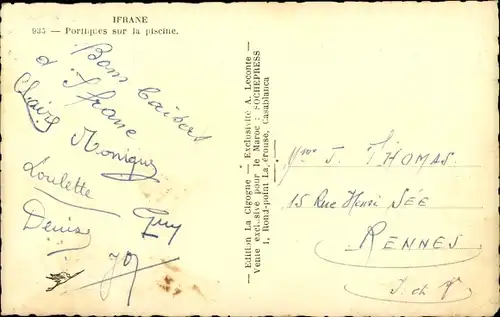 IFRANE
935 — Portiques sur la piscine.
Bons baisers
d'Ifrane
Claire
Monique
Loulette
Guy
Denise
— Edition La Cigogne — Exclusivité A. Leconte —
Vente exclusive pour le Maroc : SOCHEPRESS
1, Rond-point La érouse, Casablanca
Mme J. THOMAS.
15 Rue Henri SÉE
RENNES
I. et V.